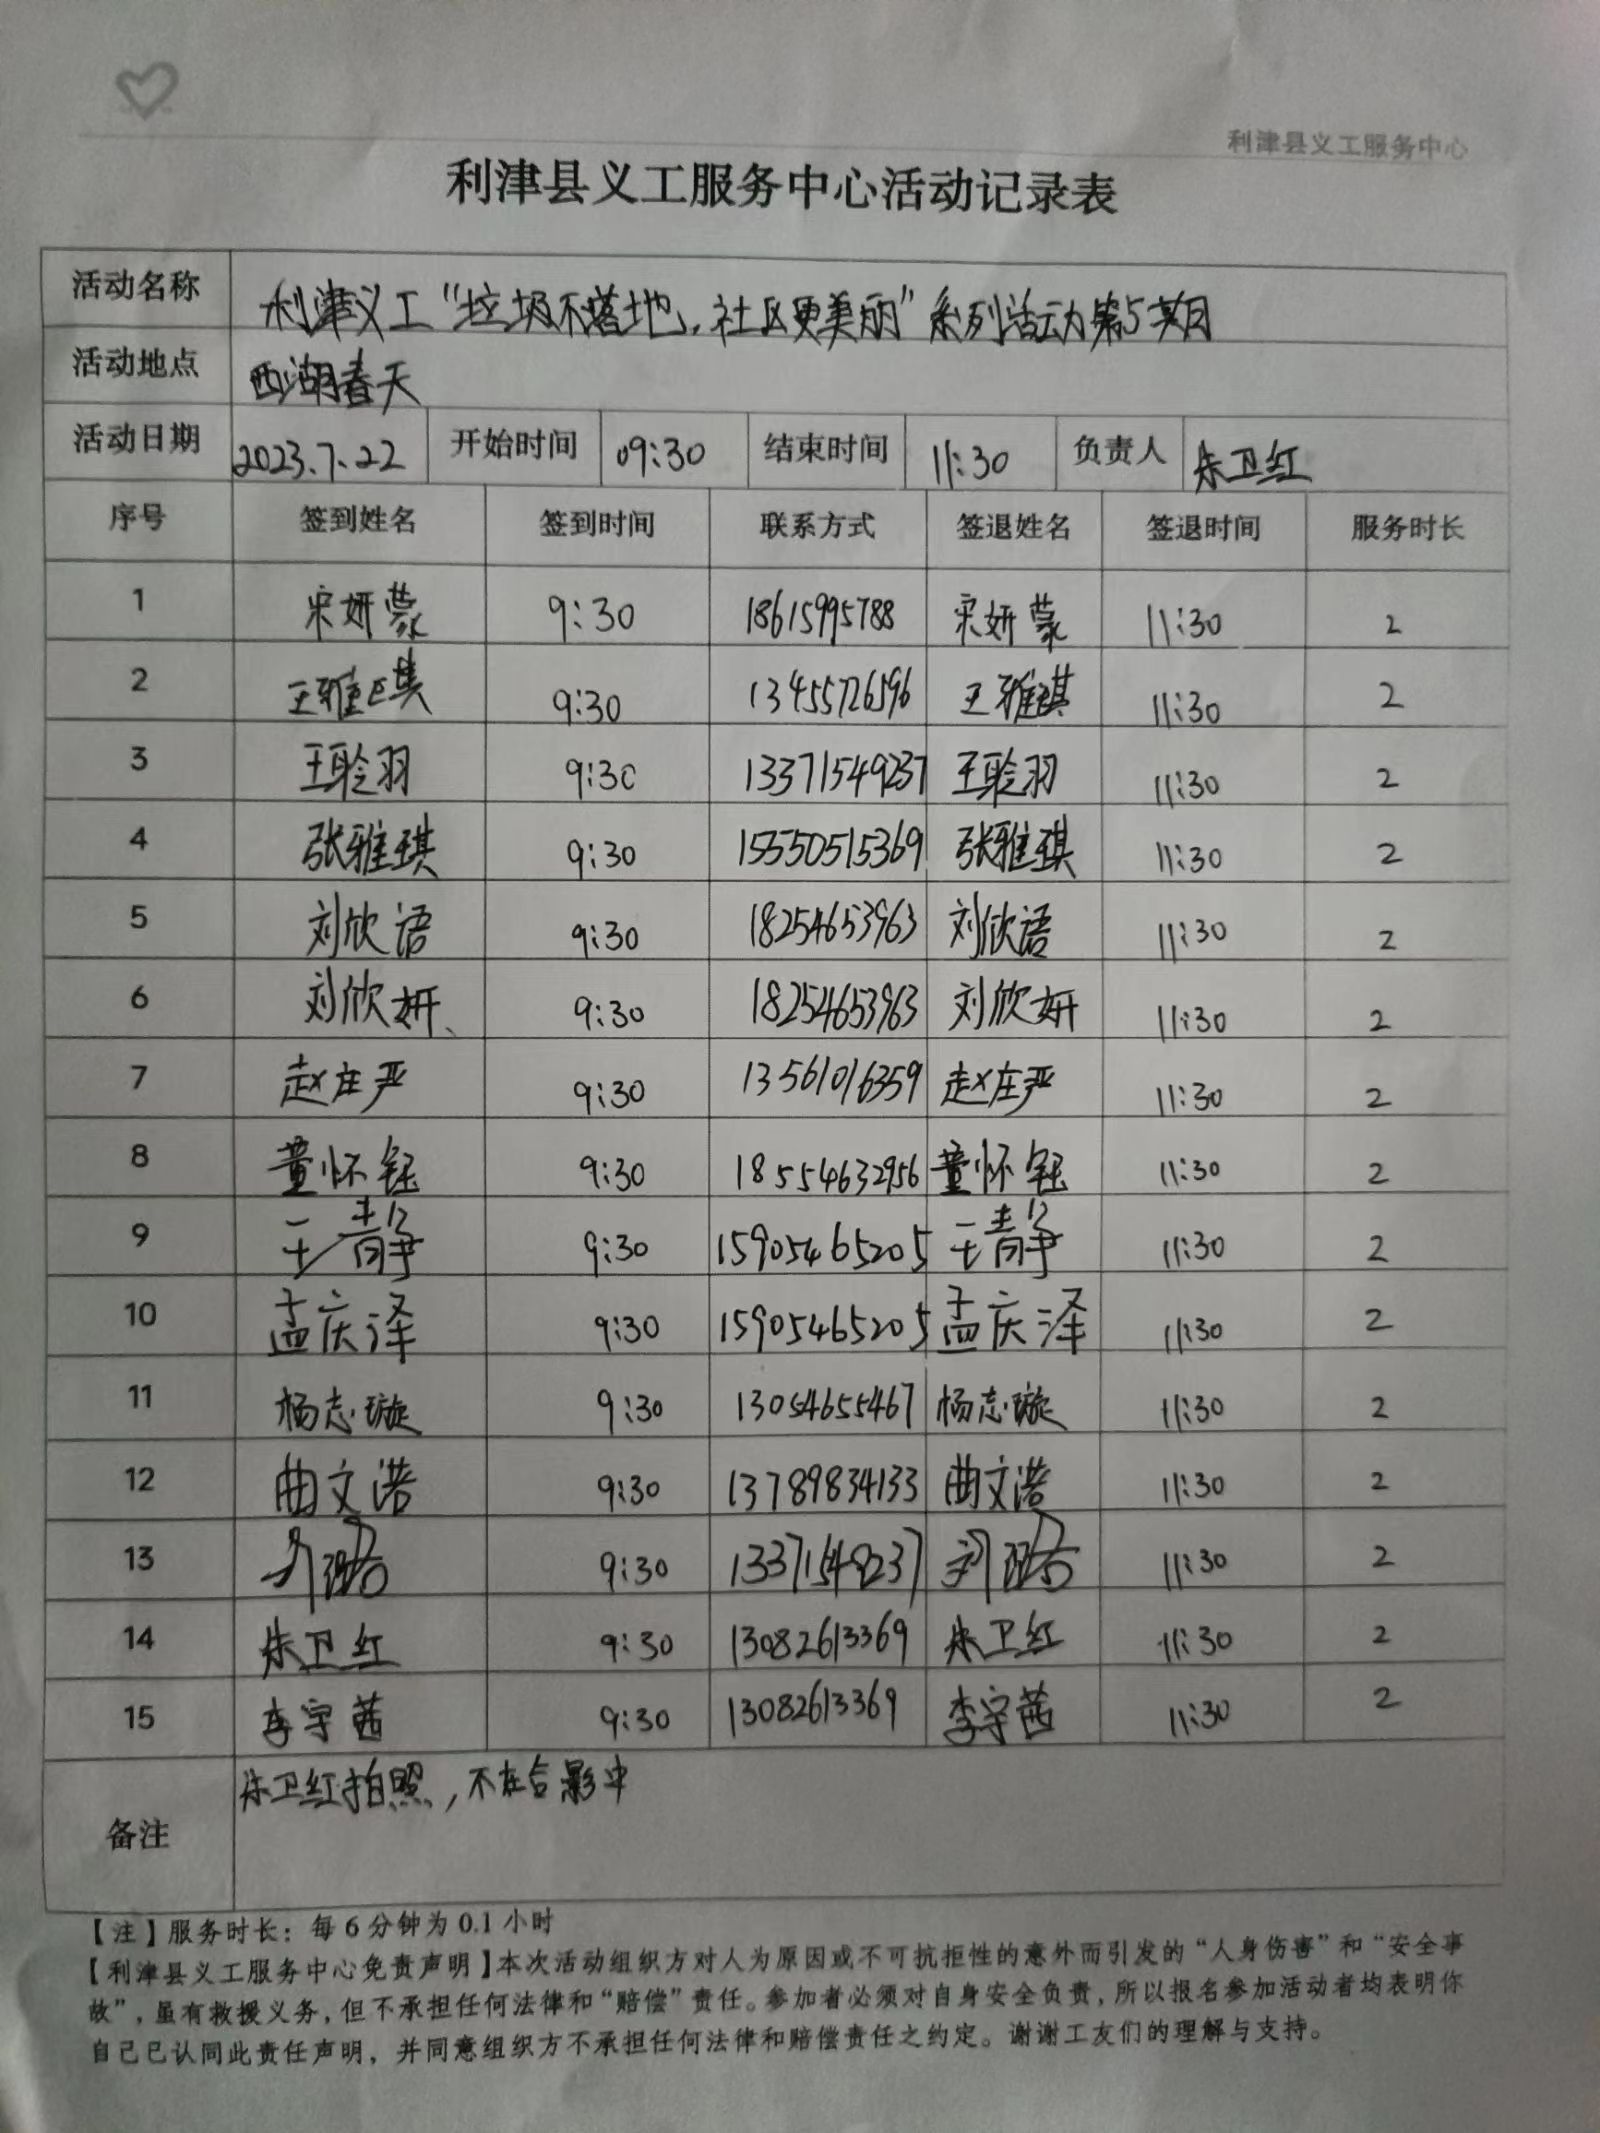 利津县义工服务中心
利津县义工服务中心活动记录表
活动名称 利津义工“垃圾不落地,社区更美丽”系列活动第5期
活动地点 西湖春天
活动日期 2023.7.22 开始时间 09:30 结束时间 11:30 负责人 朱卫红
序号 签到姓名 签到时间 联系方式 签退姓名 签退时间 服务时长
1 宋妍蒙 9:30 18615995788 宋妍蒙 11:30 2
2 王雅琪 9:30 13455726596 王雅琪 11:30 2
3 王聆羽 9:30 13371549237 王聆羽 11:30 2
4 张雅琪 9:30 15550515369 张雅琪 11:30 2
5 刘欣语 9:30 18254653963 刘欣语 11:30 2
6 刘欣妍 9:30 18254653963 刘欣妍 11:30 2
7 赵庄严 9:30 13561016359 赵庄严 11:30 2
8 董怀钰 9:30 18554632956 董怀钰 11:30 2
9 王静 9:30 15905465205 王静 11:30 2
10 孟庆泽 9:30 15905465205 孟庆泽 11:30 2
11 杨志璇 9:30 13054655467 杨志璇 11:30 2
12 曲文浩 9:30 13789834133 曲文浩 11:30 2
13 9:30 13371549237 11:30 2
14 朱卫红 9:30 13082613369 朱卫红 11:30 2
15 李宇茜 9:30 13082613369 李宇茜 11:30 2
备注 朱卫红拍照,不在合影中
【注】服务时长：每6分钟为0.1小时
【利津县义工服务中心免责声明】本次活动组织方对人为原因或不可抗拒性的意外而引发的“人身伤害”和“安全事
故”，虽有救援义务，但不承担任何法律和“赔偿”责任。参加者必须对自身安全负责，所以报名参加活动者均表明你
自己已认同此责任声明，并同意组织方不承担任何法律和赔偿责任之约定。谢谢工友们的理解与支持。